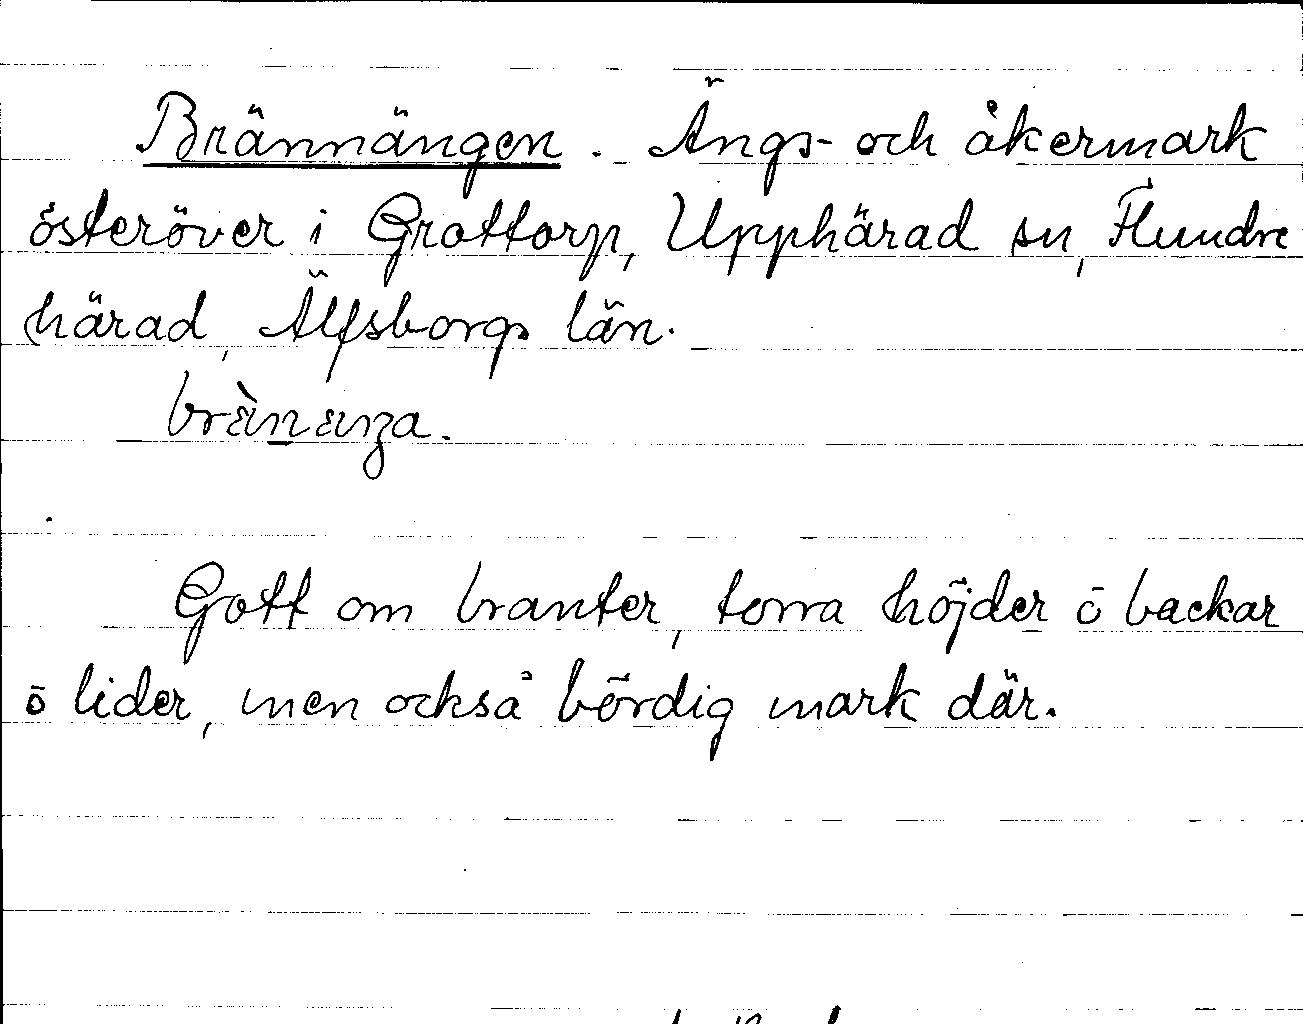 Brännängen. Ängs- och åkermark
österöver i Grottorp, Upphärad sn, Flundre
härad, Älfsborgs län.
Gott om branter, torra höjder ō backar
ō lider, men också bördig mark där.